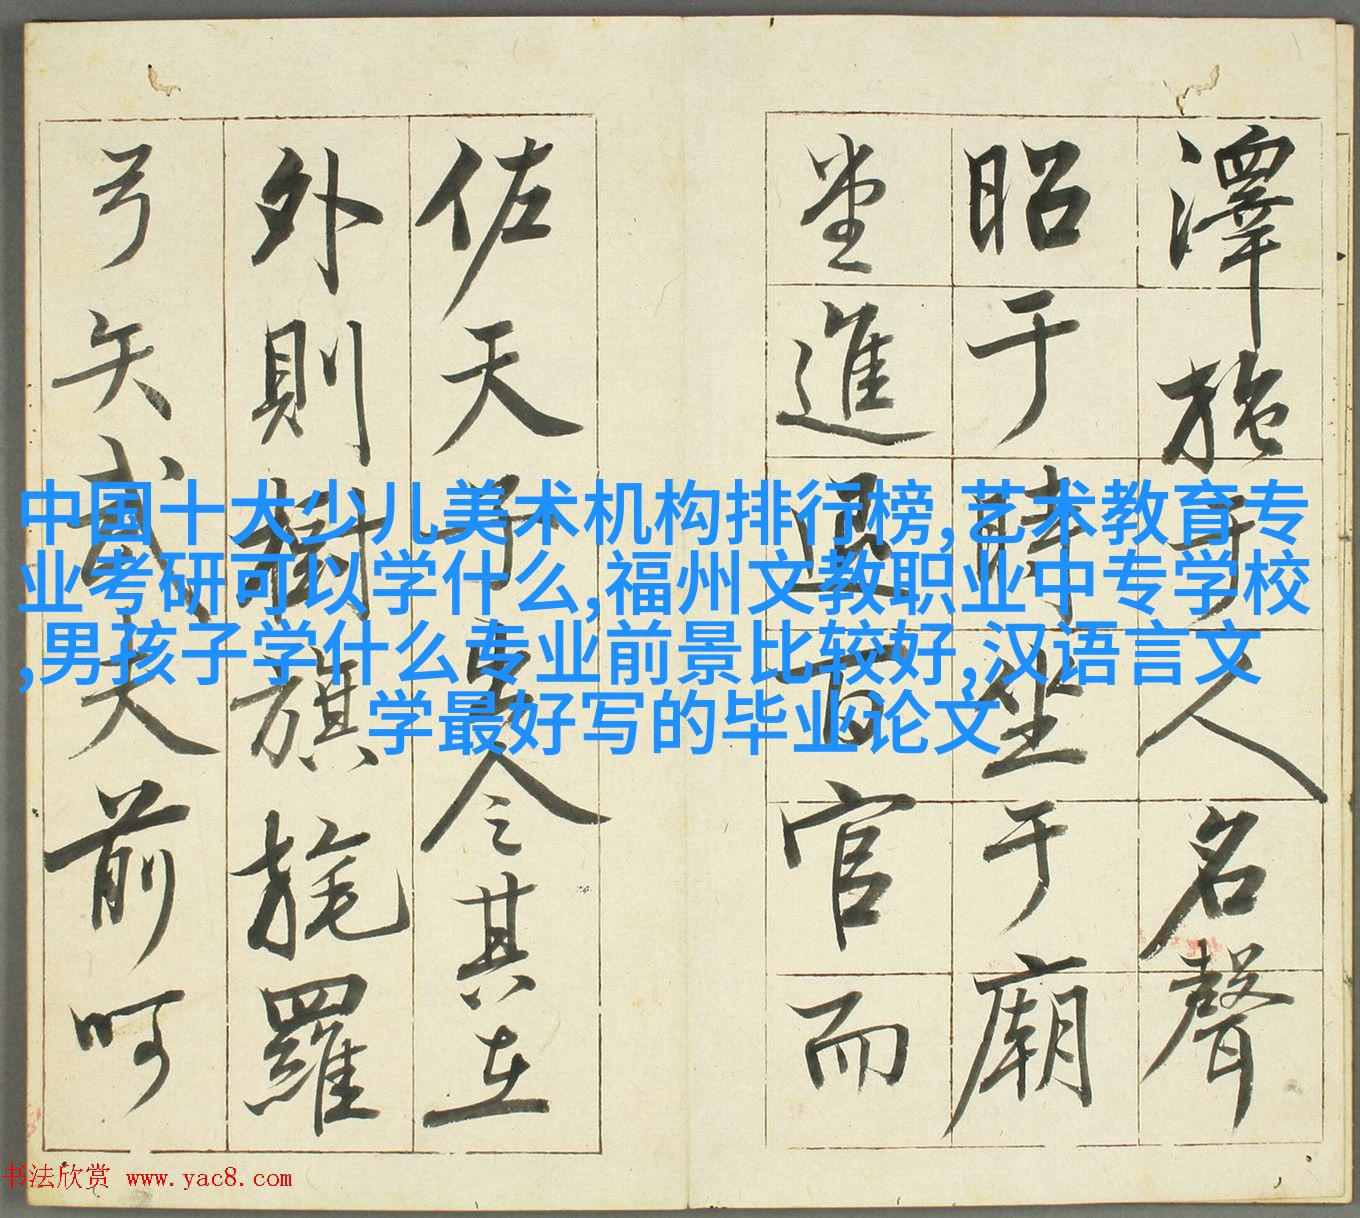 澤施于人名聲
昭于時坐于廟
堂進退百官而
佐天子出令其在
外則樹旗旄羅
弓矢武夫前呵
中国十大少儿美术机构排行榜,艺术教育专
业考研可以学什么,福州文教职业中专学校
,男孩子学什么专业前景比较好,汉语言文
学最好写的毕业论文
书法欣赏 www.yac8.com